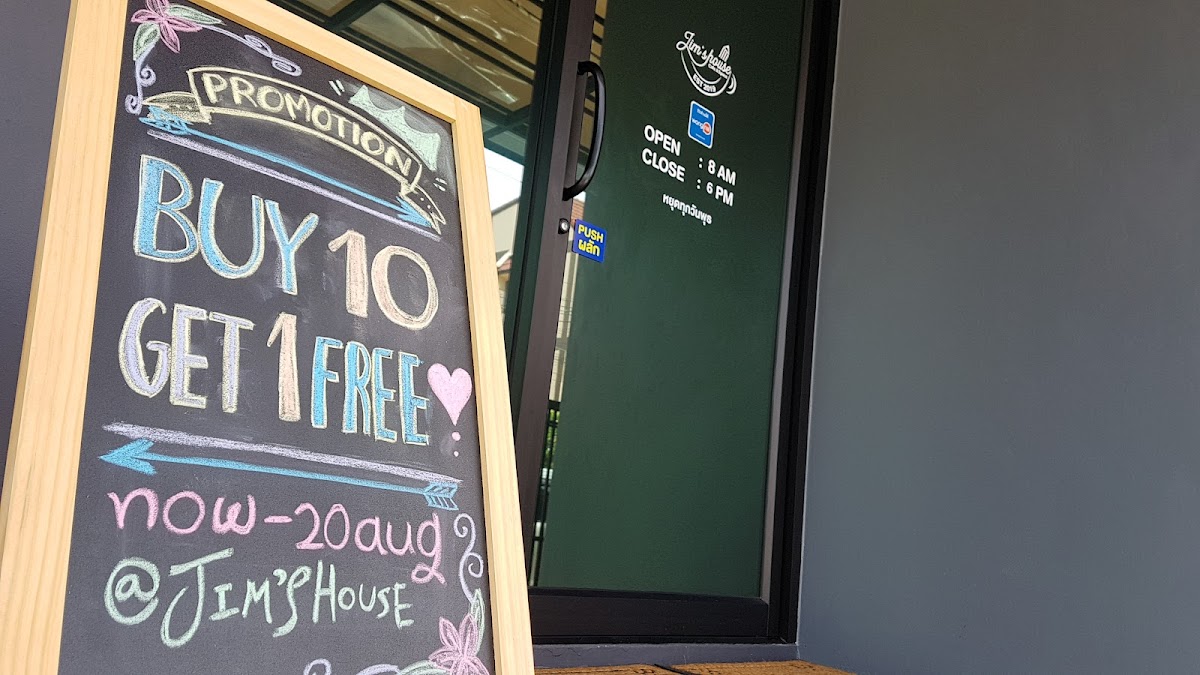 PROMOTION!
BUY 10
GET 1 FREE
now - 20 aug
@ JIM'S HOUSE
Jim's house
OPEN : 8 AM
CLOSE : 6 PM
หยุดทุกวันพุธ
PUSH
ผลัก